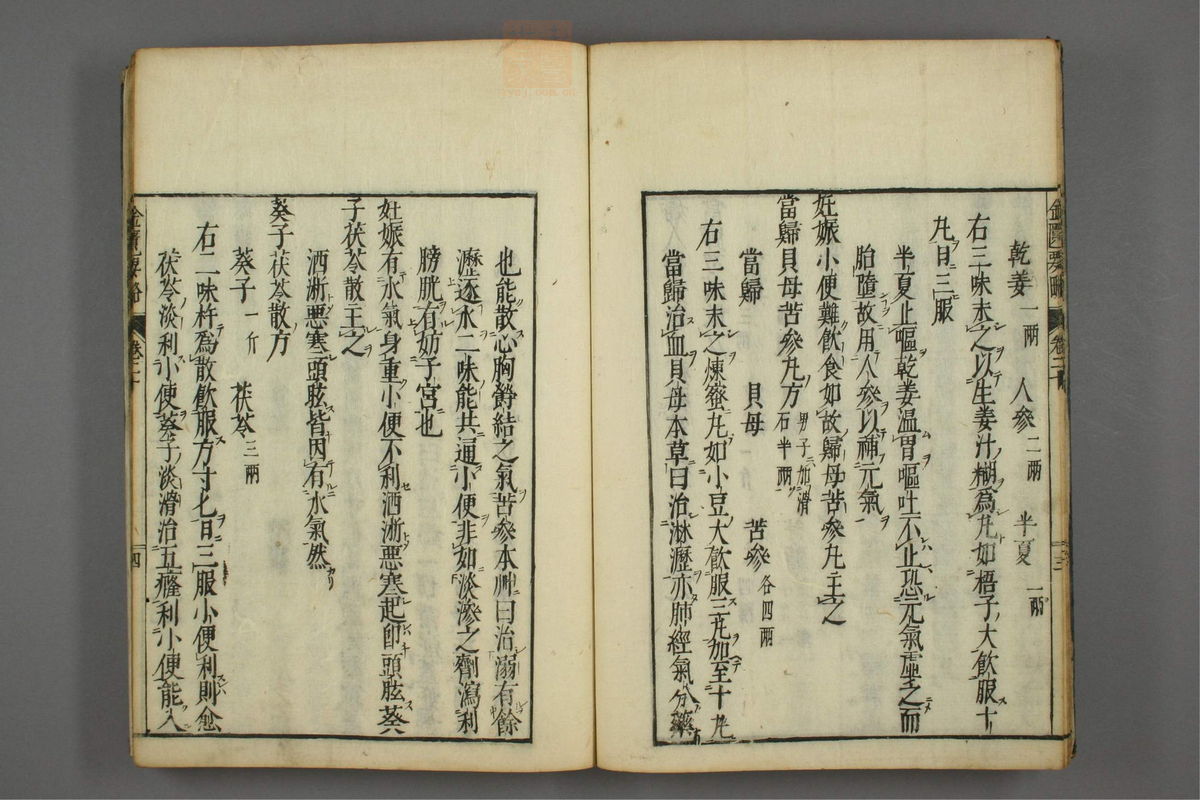 乾姜一兩 人參二兩 半夏一兩
右三味末之以生姜汁糊為丸如梧子大飲服十
丸日三服
半夏止嘔乾姜溫胃嘔吐不止恐元氣虛之而
胎墮故用人參以補元氣
妊娠小便難飲食如故歸母苦參丸主之
當歸貝母苦參丸方 男子加滑石半兩
當歸 貝母 苦參各四兩
右三味末之煉蜜丸如小豆大飲服三丸加至十丸
當歸治血貝母本草曰治淋瀝亦肺經氣分藥
金匱要略 卷三 三
也能散心胸欝結之氣苦參本艸曰治溺有餘
瀝逐水二味能共通小便非如淡滲之劑瀉利
膀胱有妨子宮也
妊娠有水氣身重小便不利洒淅惡寒起即頭眩葵
子茯苓散主之
洒淅惡寒頭眩皆因有水氣然
葵子茯苓散方
葵子一斤 茯苓三兩
右二味杵為散飲服方寸匕日三服小便利則愈
茯苓淡利小便葵子淡滑治五癃利小便能入
金匱要略 卷三 四